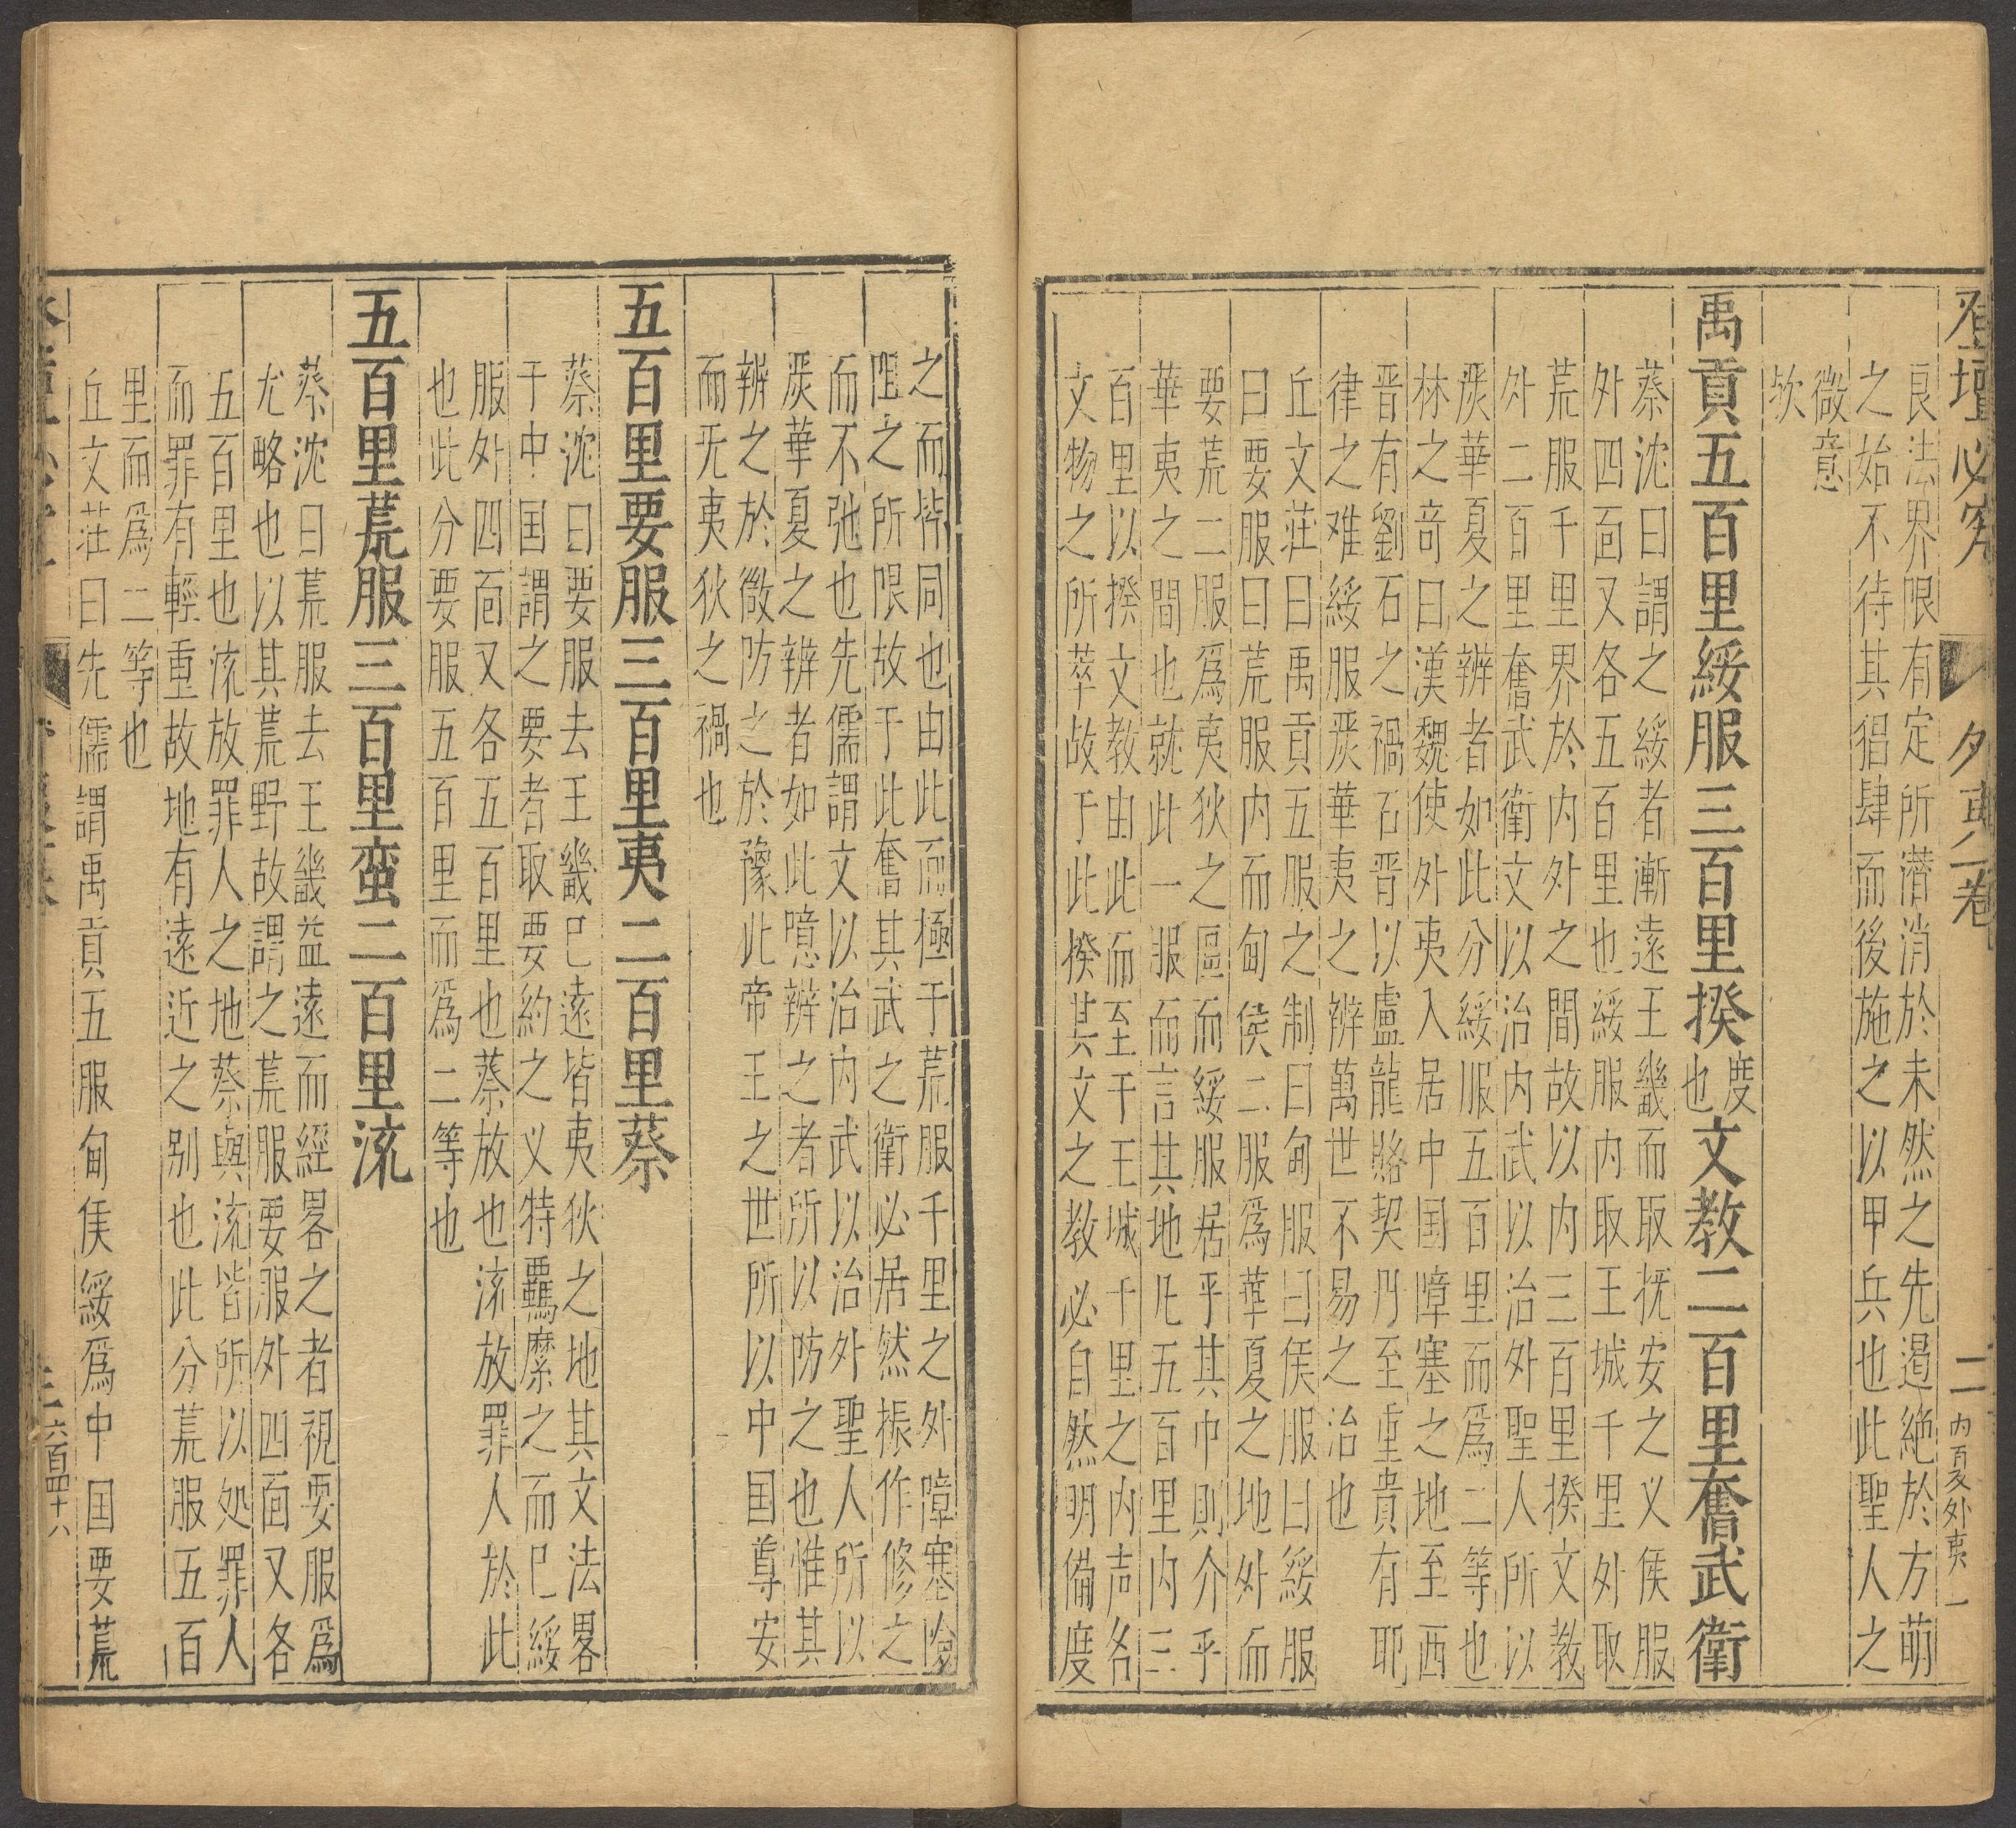 登壇必究 夕夷一卷 二 内夏外夷一
良法界限有定所潜消於未然之先遏絶於方萌
之始不待其猖肆而後施之以甲兵也此聖人之
微意
欤
禹貢五百里綏服三百里揆度也文教二百里奮武衛
蔡沈曰謂之綏者漸遠王畿而取抚安之义侯服
外四面又各五百里也綏服内取王城千里外取
荒服千里界於内外之間故以内三百里揆文教
外二百里奮武衛文以治内武以治外聖人所以
嚴華夏之辨者如此分綏服五百里而爲二等也
林之奇曰漢魏使外夷入居中国障塞之地至西
晋有劉石之禍石晋以盧龍賂契丹至重貴有耶
律之难綏服嚴華夷之辨萬世不易之治也
丘文莊曰禹貢五服之制曰甸服曰侯服曰綏服
曰要服曰荒服内而甸侯二服爲華夏之地外而
要荒二服爲夷狄之區而綏服居乎其中則介乎
華夷之間也就此一服而言其地凡五百里内三
百里以揆文教由此而至于王城千里之内声名
文物之所萃故于此揆其文之教必自然明備度
之而皆同也由此而極于荒服千里之外障塞險
阻之所限故于此奮其武之衛必居然振作修之
而不弛也先儒謂文以治内武以治外聖人所以
嚴華夏之辨者如此噫辨之者所以防之也惟其
辨之於微防之於豫此帝王之世所以中国尊安
而无夷狄之禍也
五百里要服三百里夷二百里蔡
蔡沈曰要服去王畿已遠皆夷狄之地其文法畧
于中国謂之要者取要約之义特羈縻之而已綏
服外四面又各五百里也蔡放也流放罪人於此
也此分要服五百里而爲二等也
五百里荒服三百里蛮二百里流
蔡沈曰荒服去王畿益遠而經畧之者視要服爲
尤略也以其荒野故謂之荒服要服外四面又各
五百里也流放罪人之地蔡與流皆所以処罪人
而罪有輕重故地有遠近之别也此分荒服五百
里而爲二等也
丘文莊曰先儒謂禹貢五服甸侯綏爲中国要荒
三 六百四十八